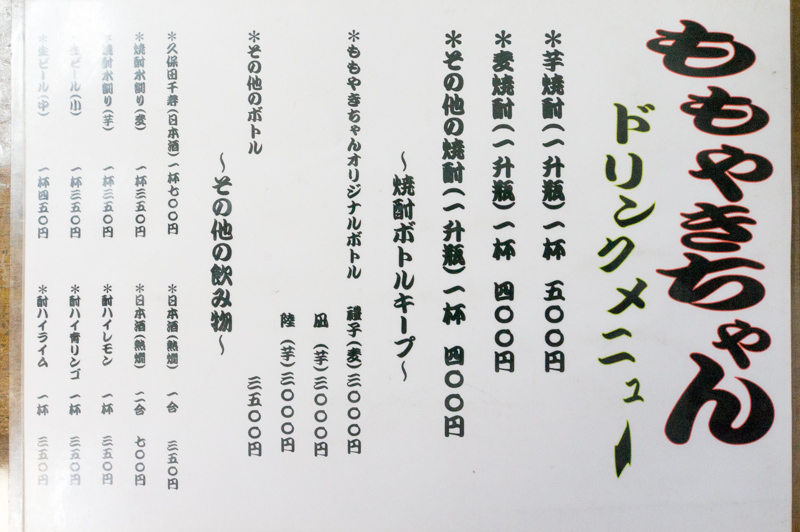 ももやきちゃん
ドリンクメニュー
＊芋焼酎(一升瓶)一杯 五〇〇円
＊麦焼酎(一升瓶)一杯 四〇〇円
＊その他の焼酎(一升瓶)一杯 四〇〇円
～焼酎ボトルキープ～
＊ももやきちゃんオリジナルボトル 禮子(麦)三〇〇〇円
凪 (芋)三〇〇〇円
陸 (芋)三〇〇〇円
＊その他のボトル 三五〇〇円
～その他の飲み物～
＊久保田千寿(日本酒)一杯七〇〇円
＊焼酎水割り(麦) 一杯三五〇円
＊焼酎水割り(芋) 一杯三五〇円
＊生ビール(小) 一杯三五〇円
＊生ビール(中) 一杯四五〇円
＊日本酒(熱燗) 一合 三五〇円
＊日本酒(熱燗) 二合 七〇〇円
＊酎ハイレモン 一杯 三五〇円
＊酎ハイ青リンゴ 一杯 三五〇円
＊酎ハイライム 一杯 三五〇円